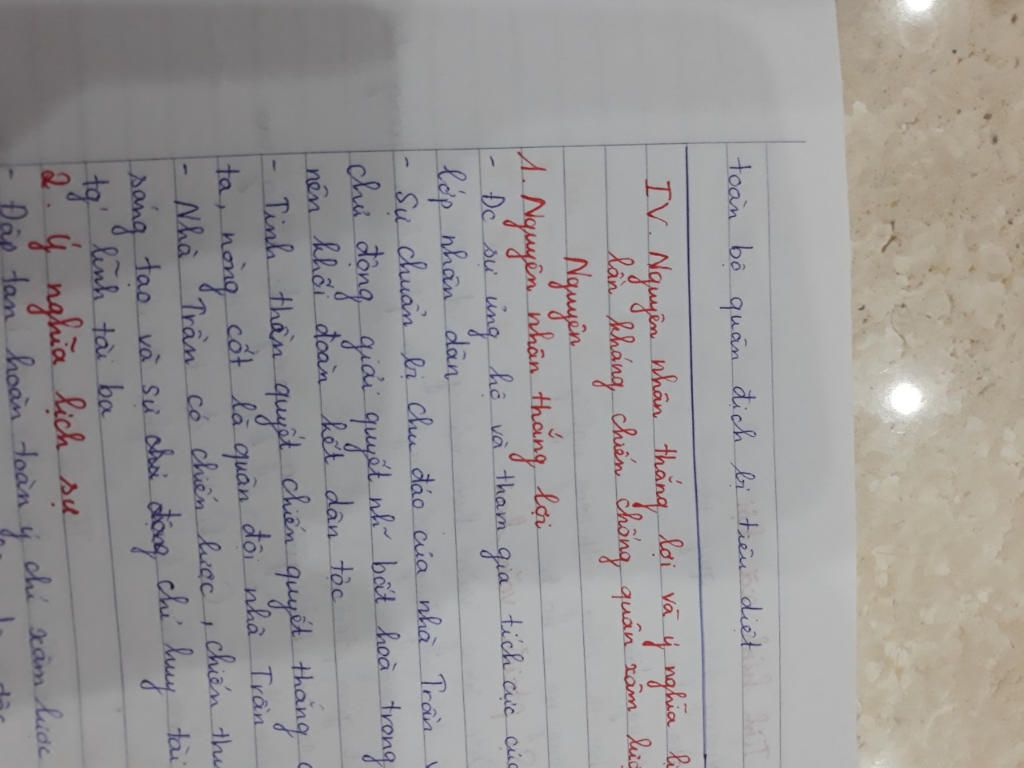 toàn bộ quân địch bị tiêu diệt
IV. Nguyên nhân thắng lợi và ý nghĩa
lần kháng chiến chống quân xâm
Nguyên
1. Nguyên nhân thắng lợi
- Đc sự ủng hộ và tham gia tích cực
lớp nhân dân
- Sự chuẩn bị chu đáo của nhà Trần
chủ động giải quyết nh~ bất hoà trong
nên khối đoàn kết dân tộc
- Tinh thần quyết chiến quyết thắng
ta, nòng cốt là quân đội nhà Trần
- Nhà Trần có chiến lược, chiến
sáng tạo và sự chủ động chỉ huy tài
tg' lĩnh tài ba
2. ý nghĩa lịch sự
- Đập tan hoàn toàn ý chí xâm lược